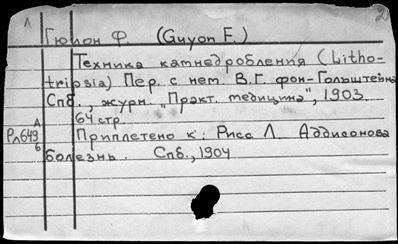 Л
Гюйон Ф. (Guyon F.)
Техника камнедробления (Litho-
tripsia) Пер. с нем. В.Г. фон-Гольштейна
Спб., журн. "Практ. медицина", 1903.
64 стр.
А
Рл649
б
Приплетено к: Рисс Л. Аддисонова
болезнь. Спб., 1904